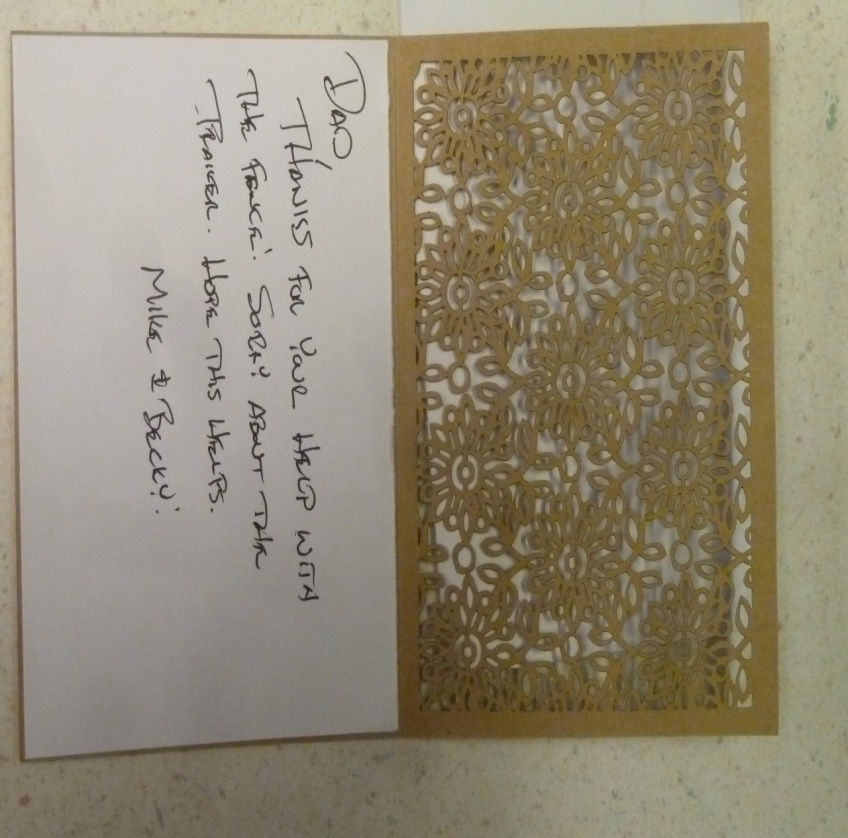 DAD
THANKS FOR YOUR HELP WITH
THE FENCE! SORRY ABOUT THE
TRAILER. HOPE THIS HELPS.
MIKE & BECKY!